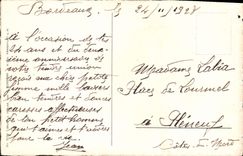 Bordeaux, le 24/11/1928
à l'occasion de tes
24 ans et du deu-
xième anniversaire de
notre tendre union
reçois ma cher petite
femme mille baisers
bien tendres et douces
caresses affectueuses
de ton petit homme
qui t'aime et t'adore
pour la vie
Jean
Madame Labia
Place de Lourmel
à Pléneuf
Côtes du Nord